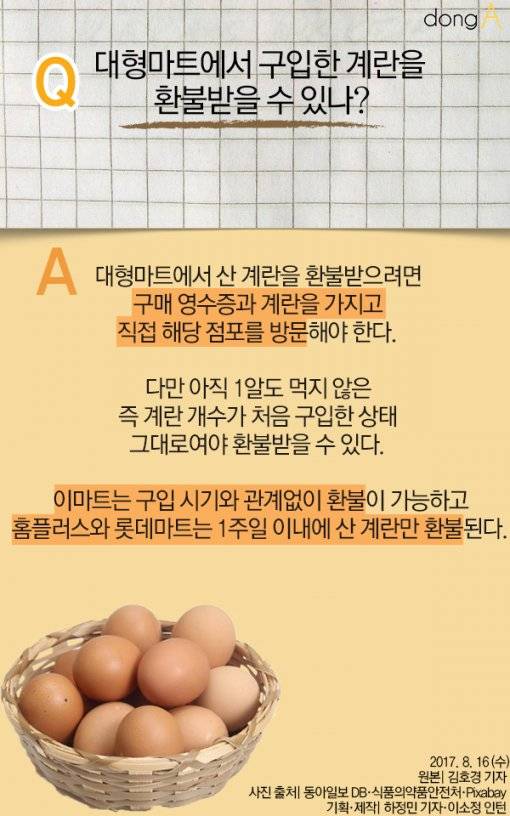 dongA
Q 대형마트에서 구입한 계란을
환불받을 수 있나?
A 대형마트에서 산 계란을 환불받으려면
구매 영수증과 계란을 가지고
직접 해당 점포를 방문해야 한다.
다만 아직 1알도 먹지 않은
즉 계란 개수가 처음 구입한 상태
그대로여야 환불받을 수 있다.
이마트는 구입 시기와 관계없이 환불이 가능하고
홈플러스와 롯데마트는 1주일 이내에 산 계란만 환불된다.
2017. 8. 16(수)
원본| 김호경 기자
사진 출처| 동아일보 DB·식품의약품안전처·Pixabay
기획·제작| 하정민 기자·이소정 인턴